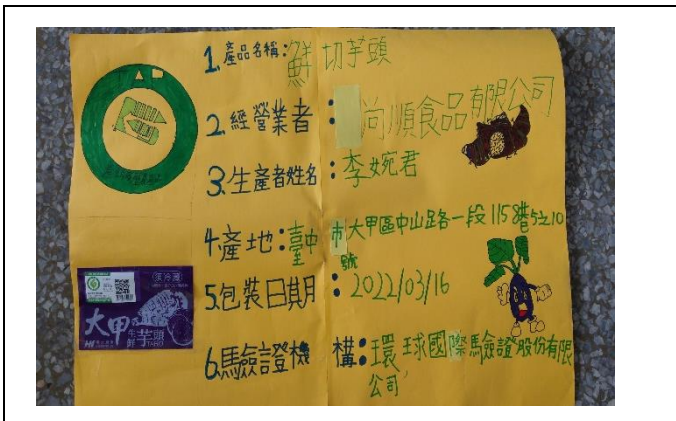 1.產品名稱:鮮切芋頭
2.經營業者:尚順食品有限公司
3.生產者姓名:李婉君
4.產地:臺中市大甲區中山路一段1158巷5之10
號
5.包裝日期:2022/03/16
6.驗證機構:環球國際驗證股份有限
公司
須冷藏
大甲
生鮮芋頭
TARO